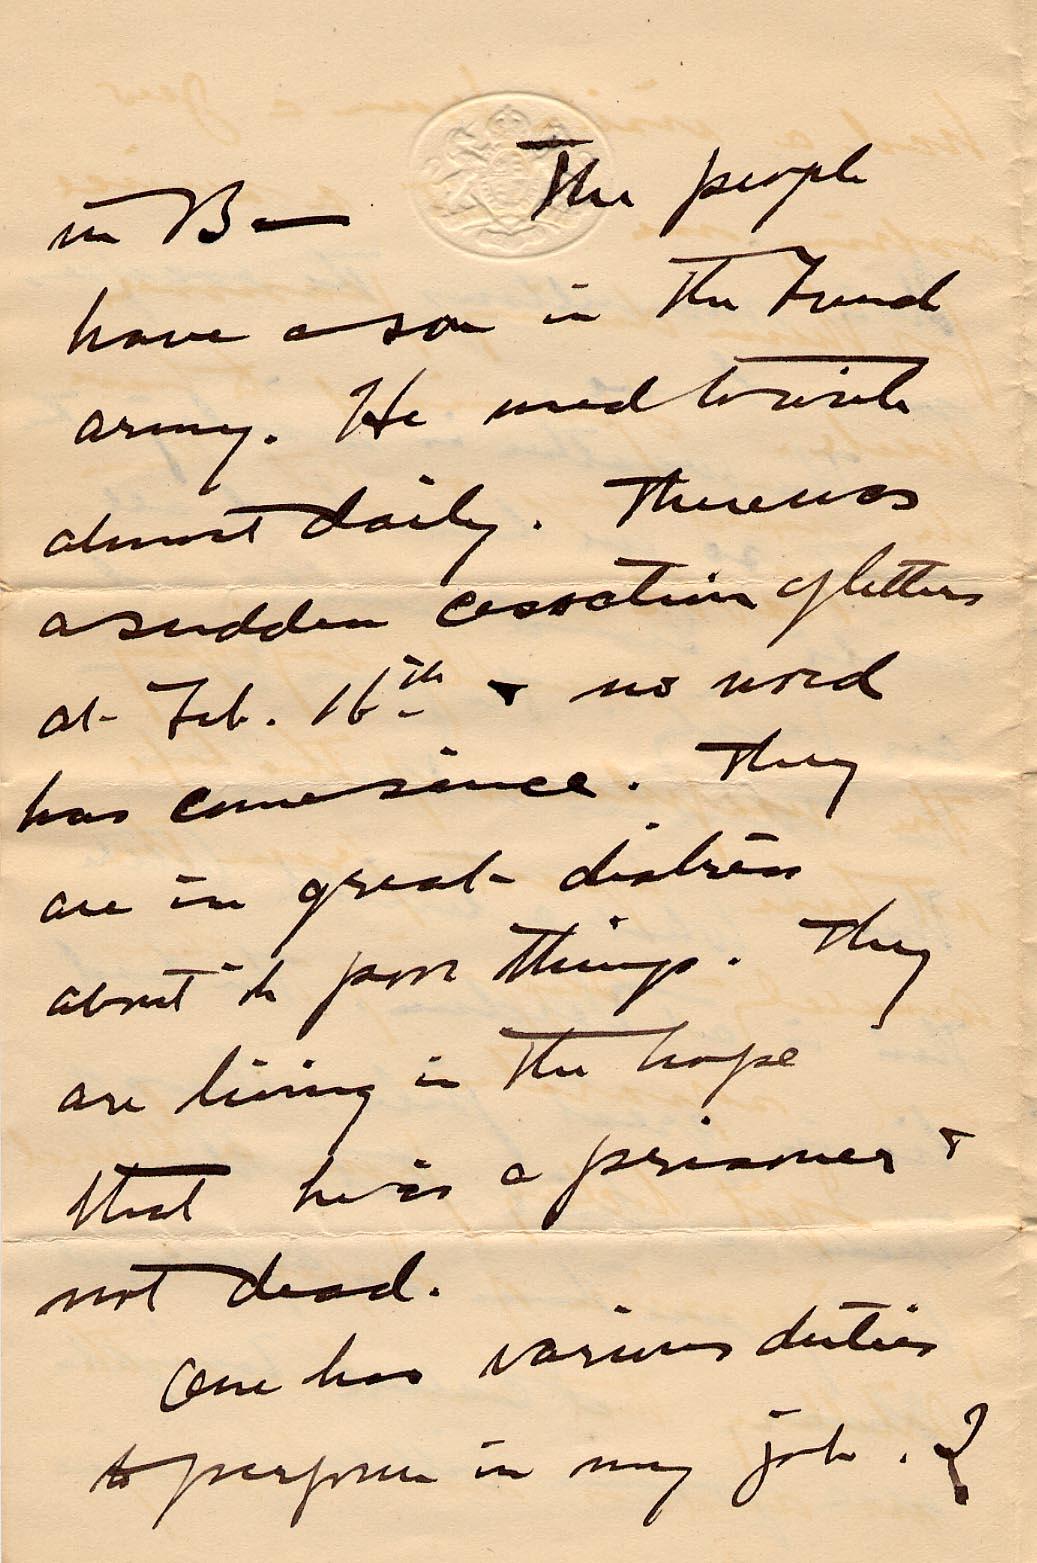 in B— The people
have a son in the French
army. He used to write
almost daily. There was
a sudden cessation of letters
at Feb. 16th & no word
has come since. They
are in great distress
about it poor things. They
are living in the hope
that he is a prisoner &
not dead.
One has various duties
to perform in my job. I